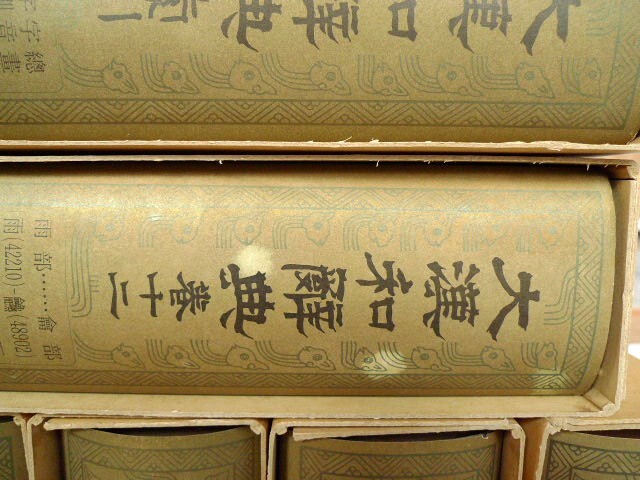 大漢和辭典
總畫
字音
大漢和辭典 卷十二
雨部……龠部
雨(42210)—龤(48902)